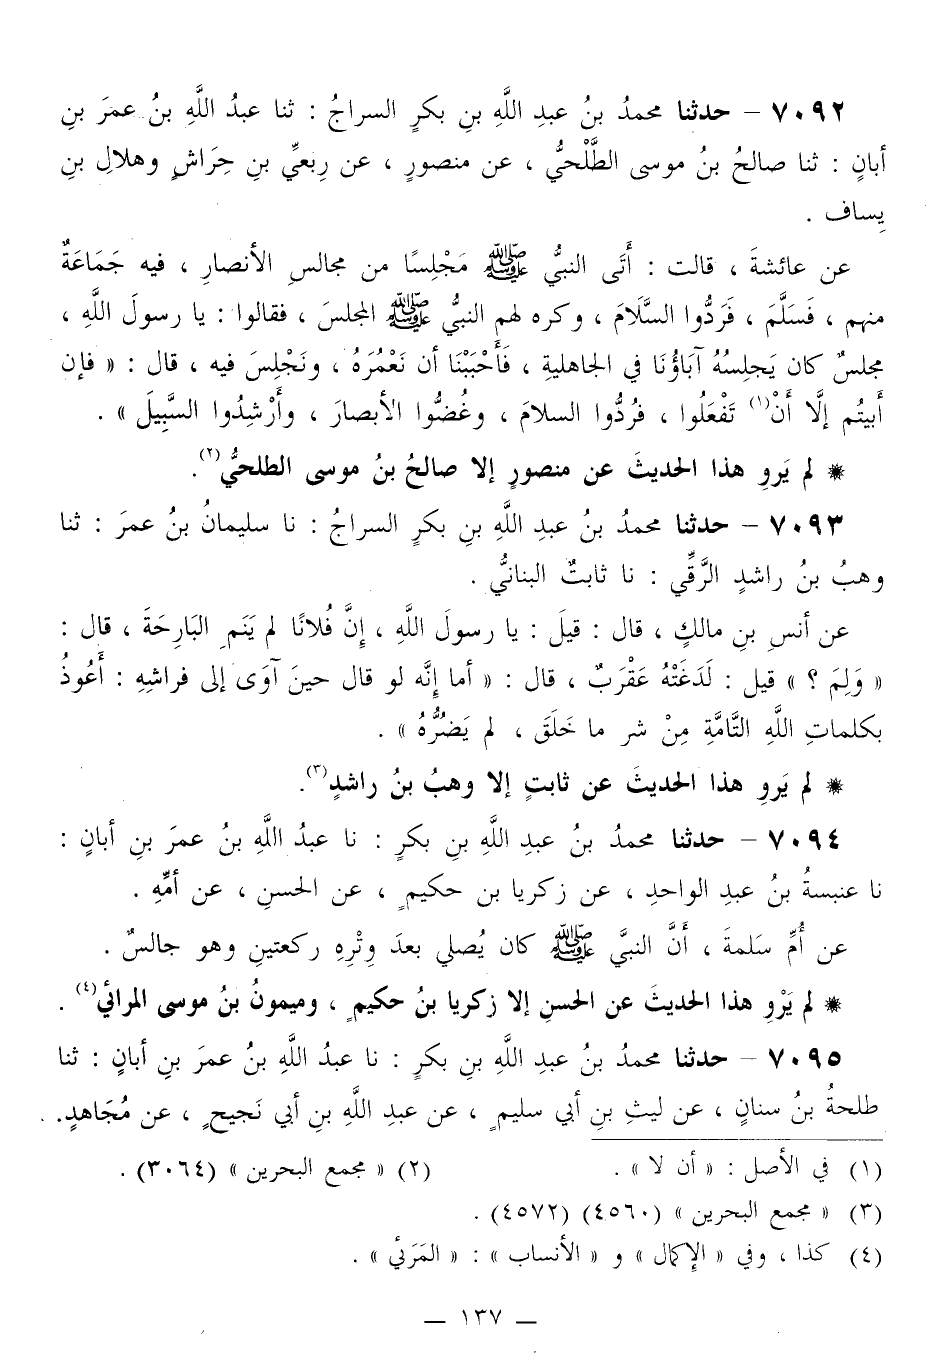 ٧٠٩٢ – حدثنا محمدُ بنُ عبدِ اللَّهِ بنِ بكرٍ السراجُ : ثنا عبدُ اللَّهِ بنُ عمرَ بنِ
أبانٍ : ثنا صالحُ بنُ موسى الطَّلْحيُّ ، عن منصورٍ ، عن رِبعيِّ بنِ حِراشٍ وهلالِ بنِ
يِساف .
عن عائشةَ ، قالت : أَتَى النبيُّ ﷺ مَجْلِسًا من مجالسِ الأنصارِ ، فيه جَمَاعَةٌ
منهم ، فَسَلَّمَ ، فَرَدُّوا السَّلَامَ ، وكره لهم النبيُّ ﷺ المجلسَ ، فقالوا : يا رسولَ اللَّهِ ،
مجلسٌ كان يَجلِسُهُ آبَاؤُنَا في الجاهليةِ ، فَأَحْبَبْنَا أن نَعْمُرَهُ ، ونَجْلِسَ فيه ، قال : « فإن
أَبيتُم إلَّا أَنْ(١) تَفْعَلُوا ، فَرُدُّوا السلامَ ، وغُضُّوا الأبصارَ ، وأَرْشِدُوا السَّبِيلَ » .
* لم يَروِ هذا الحديثَ عن منصورٍ إلا صالحُ بنُ موسى الطلحيُّ(٢).
٧٠٩٣ – حدثنا محمدُ بنُ عبدِ اللَّهِ بنِ بكرٍ السراجُ : نا سليمانُ بنُ عمرَ : ثنا
وهبُ بنُ راشدٍ الرَّقِّي : نا ثابتٌ البنانيُّ .
عن أنسِ بنِ مالكٍ ، قال : قيلَ : يا رسولَ اللَّهِ ، إِنَّ فُلانًا لم يَنَمِ البَارِحَةَ ، قال :
« وَلِمَ ؟ » قيل : لَدَغَتْهُ عَقْرَبٌ ، قال : « أما إِنَّه لو قال حينَ آوَى إلى فراشِهِ : أَعُوذُ
بكلماتِ اللَّهِ التَّامَّةِ مِنْ شر ما خَلَقَ ، لم يَضُرَّهُ » .
* لم يَروِ هذا الحديثَ عن ثابتٍ إلا وهبُ بنُ راشدٍ(٣).
٧٠٩٤ – حدثنا محمدُ بنُ عبدِ اللَّهِ بنِ بكرٍ : نا عبدُ اللَّهِ بنُ عمرَ بنِ أبانٍ :
نا عنبسةُ بنُ عبدِ الواحدِ ، عن زكريا بن حكيمٍ ، عن الحسنِ ، عن أمِّهِ .
عن أُمِّ سَلمةَ ، أَنَّ النبيَّ ﷺ كان يُصلي بعدَ وِتْرِهِ ركعتينِ وهو جالسٌ .
* لم يَرْوِ هذا الحديثَ عن الحسنِ إلا زكريا بنُ حكيمٍ ، وميمونُ بنُ موسى المرائي(٤) .
٧٠٩٥ – حدثنا محمدُ بنُ عبدِ اللَّهِ بنِ بكرٍ : نا عبدُ اللَّهِ بنُ عمرَ بنِ أبانٍ : ثنا
طلحةُ بنُ سنانٍ ، عن ليثِ بنِ أبي سليمٍ ، عن عبدِ اللَّهِ بنِ أبي نَجيحٍ ، عن مُجَاهدٍ.
(١) في الأصل : « أن لا » . (٢) « مجمع البحرين » (٣٠٦٤) .
(٣) « مجمع البحرين » (٤٥٦٠) (٤٥٧٢) .
(٤) كذا ، وفي « الإِكمال » و « الأنساب » : « المَرَئي » .
– ١٣٧ –